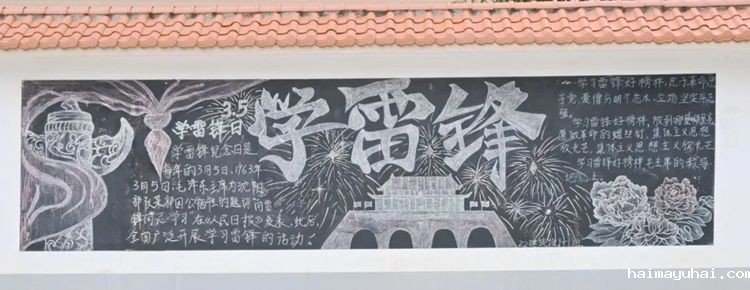 3.5
学雷锋日
学雷锋纪念日是
每年的3月5日.1963年
3月5日,毛泽东主席为沈阳
的题词
锋同志学习"在《人民日报》发表,此后,
全国广泛开展学习雷锋的活动。
学雷锋
学习雷锋好榜样,忠于革命忠
于党,爱憎分明不忘本,立场坚定斗志
强。
学习雷锋好榜样,放到哪里
愿做革命的螺丝钉,集体主义思想
放光芒,集体主义放光芒
学习雷锋好榜样毛主席的教导
记心上
haimayuhai.com